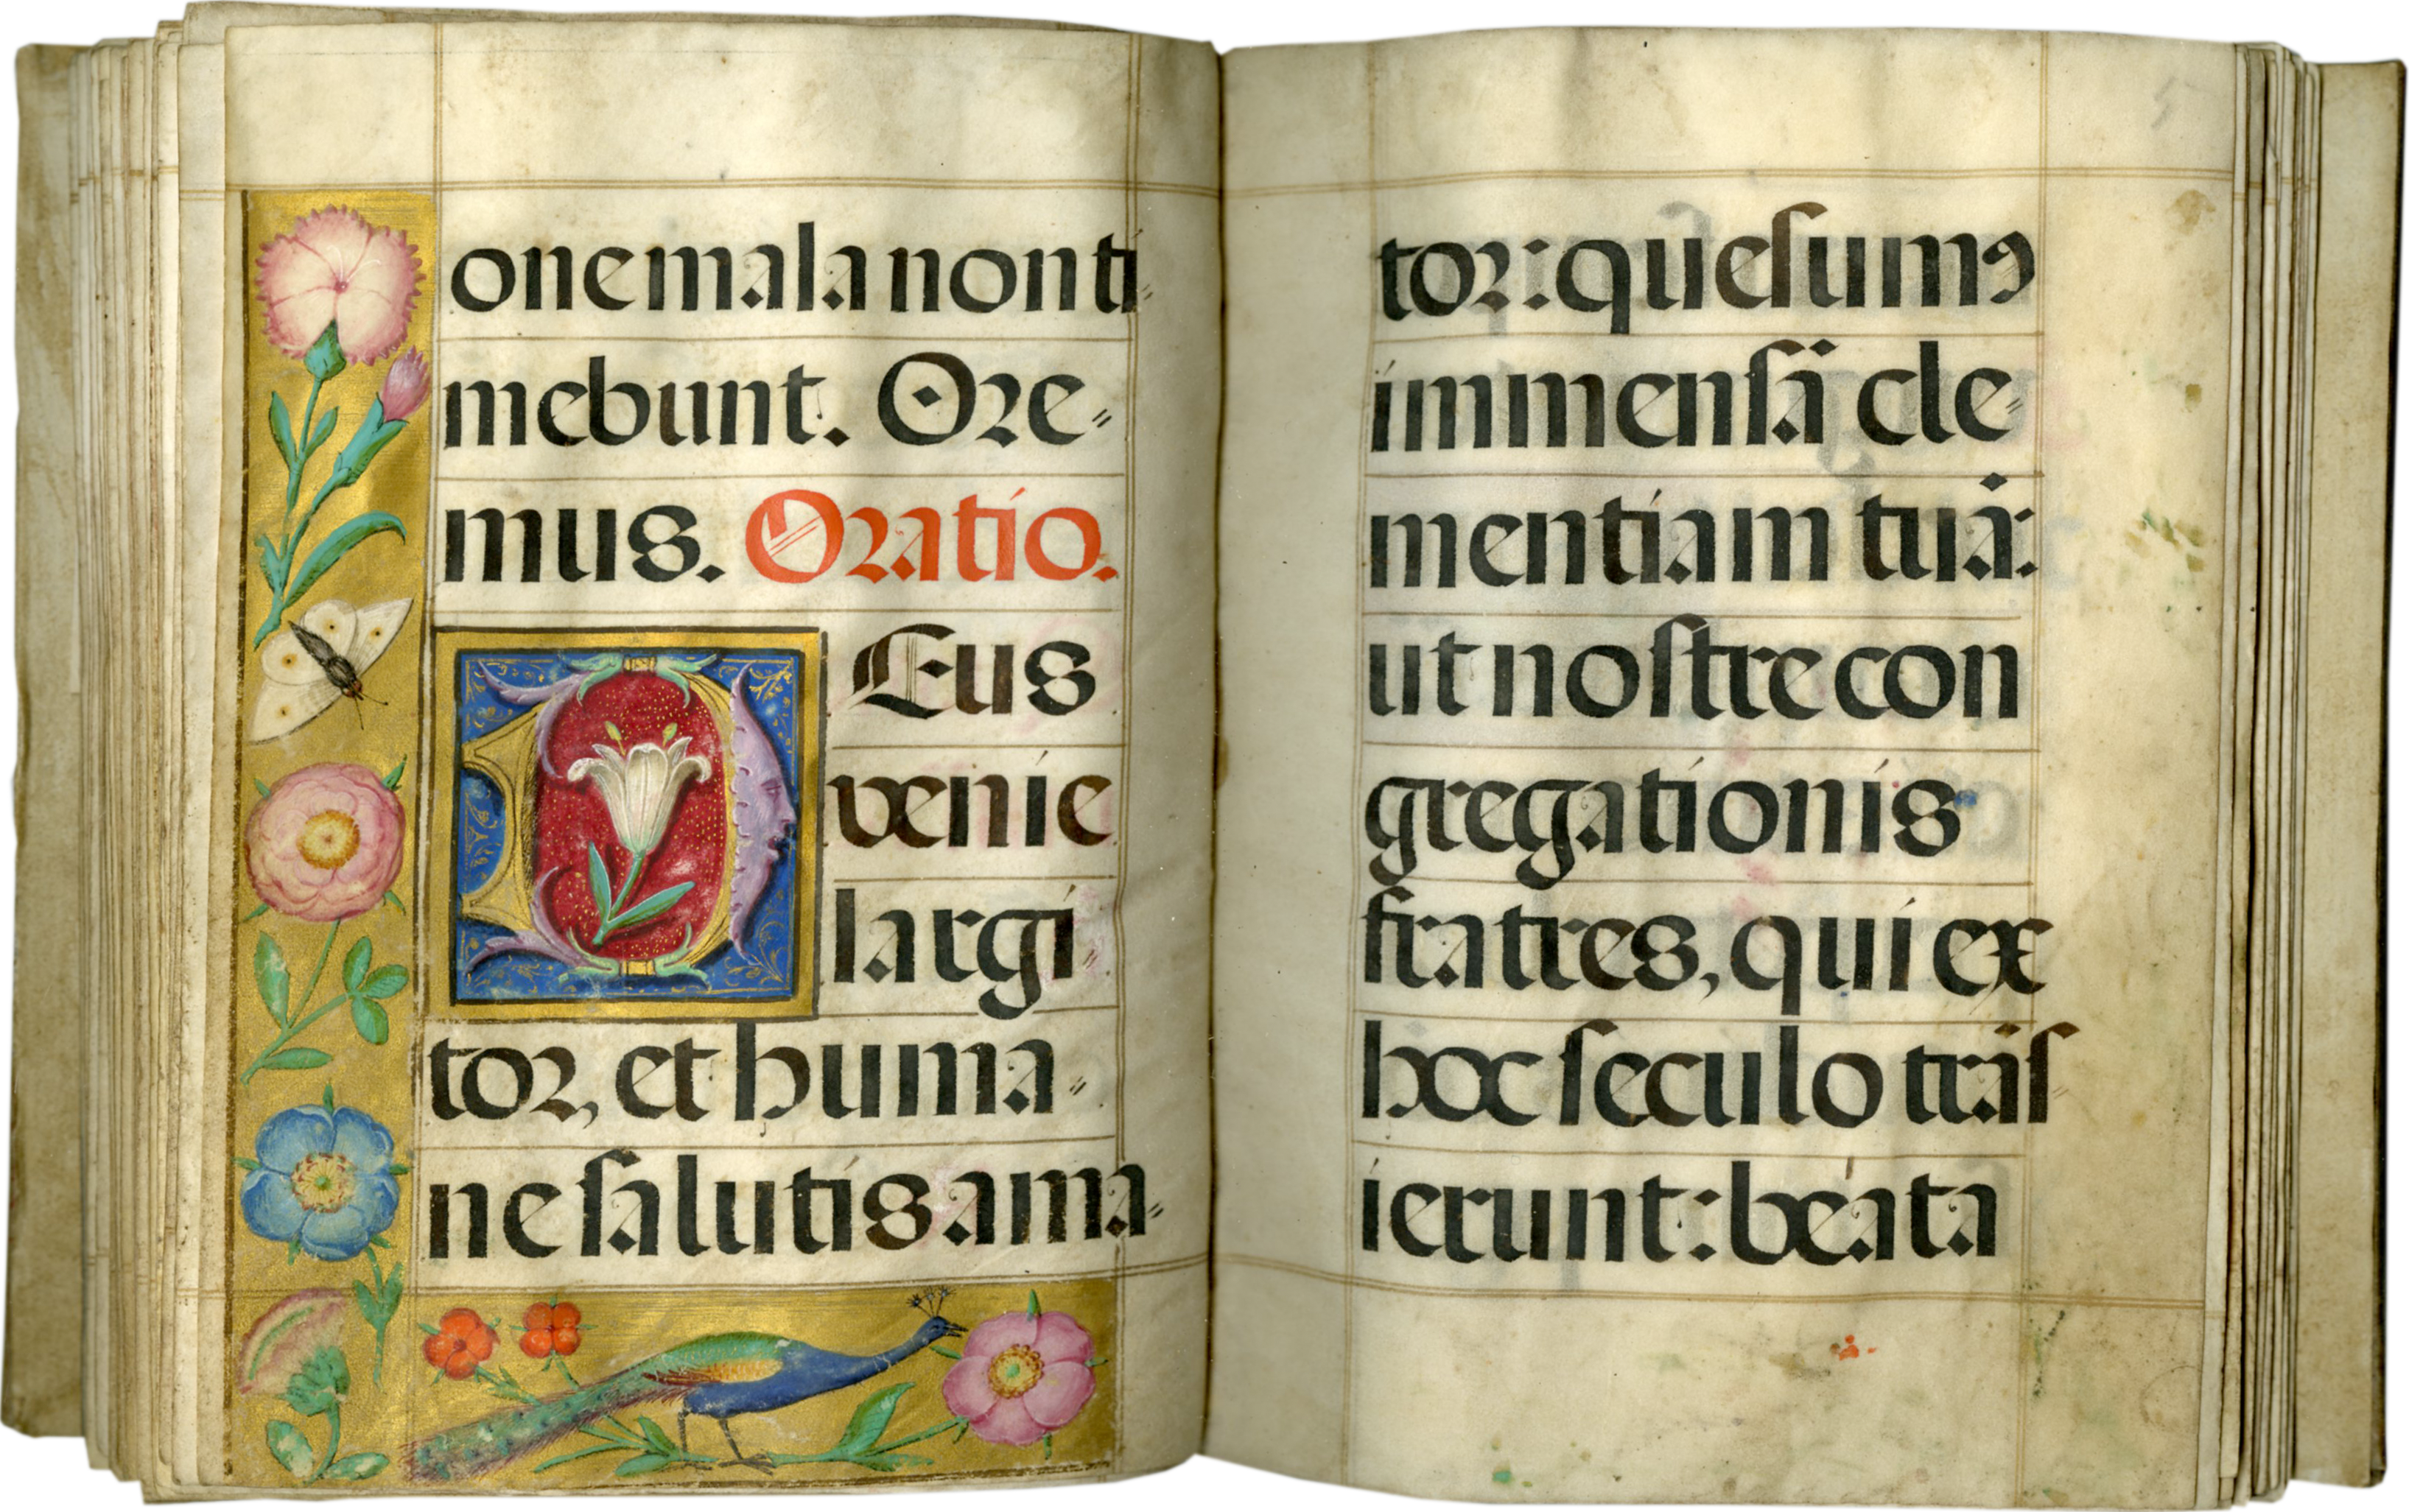 one mala non ti-
mebunt. Ore-
mus. Oratio.
DEus
venie
largi
tor, et huma-
ne salutis ama-
tor: quesumꝰ
immensã cle-
mentiam tuã:
ut nostre con
gregationis
fratres, qui ex
hoc seculo trãs
ierunt: beata